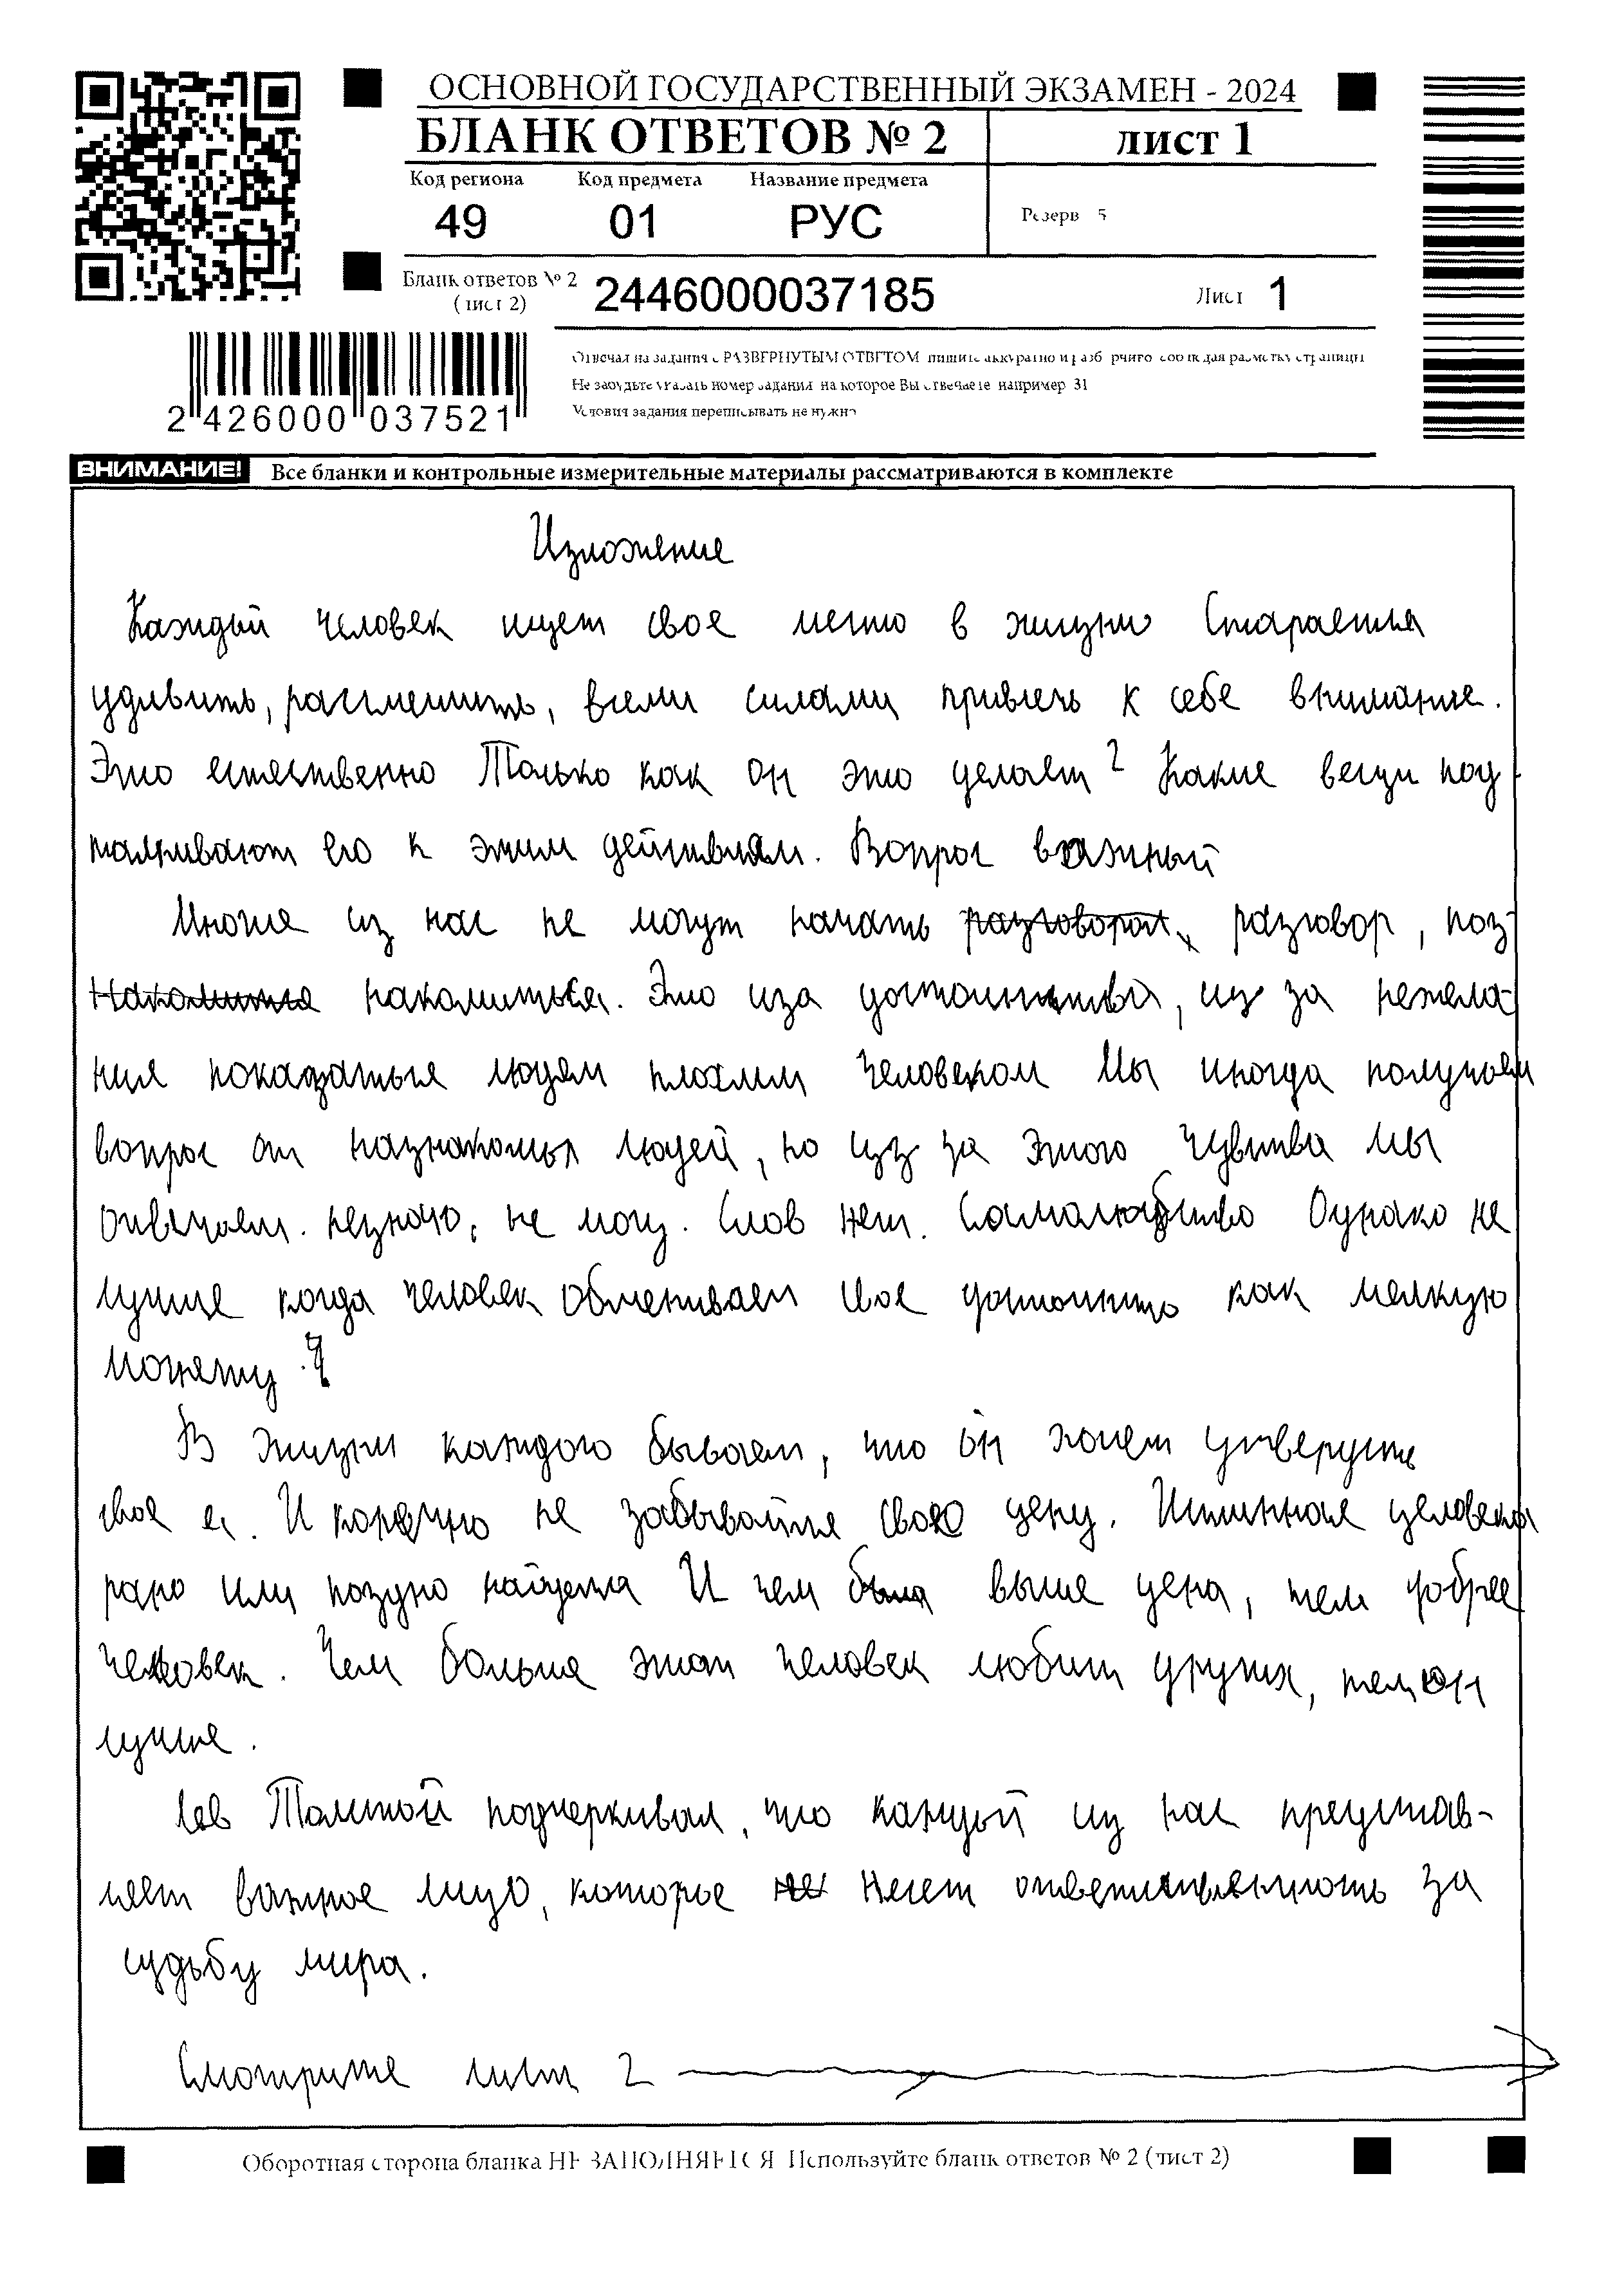 ОСНОВНОЙ ГОСУДАРСТВЕННЫЙ ЭКЗАМЕН - 2024
БЛАНК ОТВЕТОВ № 2
лист 1
Код региона Код предмета Название предмета
49 01 РУС
Резерв 5
Бланк ответов № 2
(лист 2)
2446000037185
Лист 1
2 426000 037521
Отвечая на задания с РАЗВЕРНУТЫМ ОТВЕТОМ пишите аккуратно и разборчиво соблюдая разметку страницы
Не забудьте указать номер задания на которое Вы отвечаете например 31
Условия задания переписывать не нужно
ВНИМАНИЕ! Все бланки и контрольные измерительные материалы рассматриваются в комплекте
Изложение
Каждый человек ищет свое место в жизни Старается
удивить, рассмешить, всеми силами привлечь к себе внимание.
Это естественно Только как он это делает? Какие вещи под
талкивают его к этим действиям. Вопрос важный
Многие из нас не могут начать разговор, поз-
накомиться. Это иза достоинства, из за нежела-
ния показаться людям плохим человеком Мы иногда получаем
вопрос от назнакомых людей, но из за этого чувства мы
отвечаем. незнаю, не могу. Слов нет. Самалюбиво Однако не
лучше когда человек обменивает свое достоинство как мелкую
монету?
В жизни каждого бывает, что он хочет утвердить
свое я. И конечно не забывайте свою цену. Истинная человека
рано или поздно найдется И чем выше цена, тем добрее
человек. Чем больше этот человек любит других, тем он
лучше.
Лев Толстой подчеркивал, что каждый из нас представ-
ляет важное лицо, которое несет ответственность за
судьбу мира.
Смотрите лист 2
Оборотная сторона бланка НЕ ЗАПОЛНЯЕТСЯ Используйте бланк ответов № 2 (лист 2)